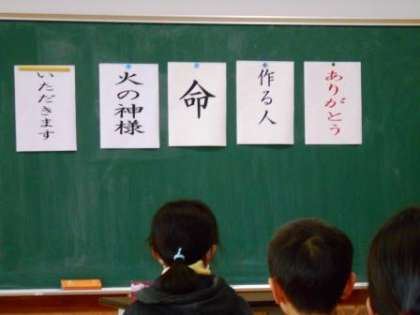 ありがとう
作る人
命
火の神様
いただきます